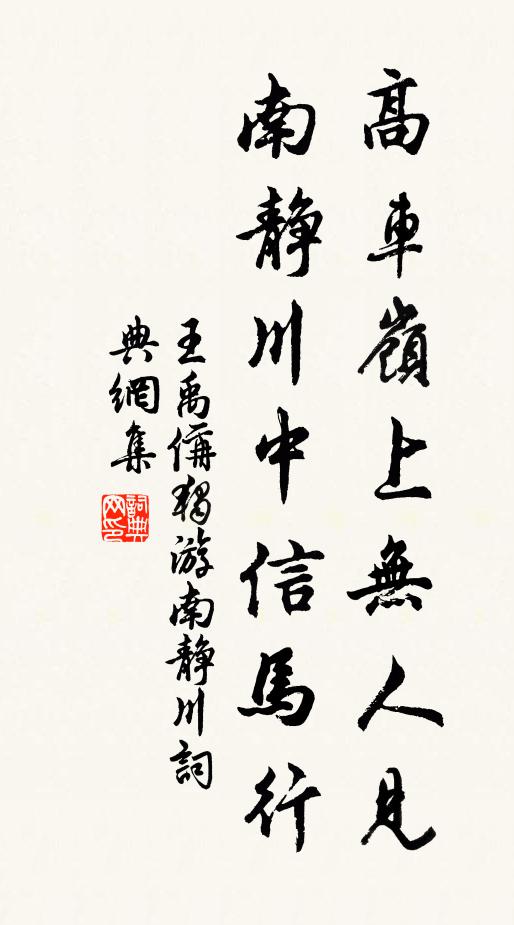 高車嶺上無人見
南静川中信馬行
王禹偁獨游南静川詞
典網集
詞典网印